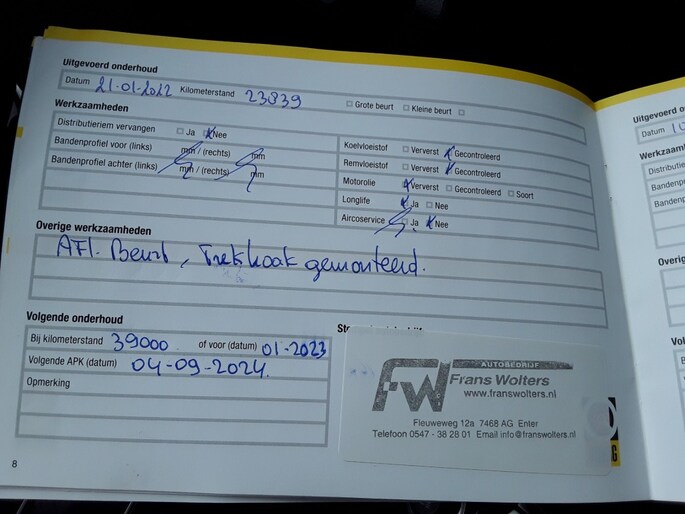 Uitgevoerd onderhoud
Datum 21-01-2022 Kilometerstand 23839 Grote beurt Kleine beurt
Werkzaamheden
Distributieriem vervangen Ja Nee
Bandenprofiel voor (links) mm / (rechts) mm
Bandenprofiel achter (links) mm / (rechts) mm
Koelvloeistof Ververst Gecontroleerd
Remvloeistof Ververst Gecontroleerd
Motorolie Ververst Gecontroleerd Soort
Longlife Ja Nee
Aircoservice Ja Nee
Overige werkzaamheden
Afl. Beurt, Trekhaak gemonteerd.
Volgende onderhoud
Bij kilometerstand 39000 of voor (datum) 01-2023
Volgende APK (datum) 04-09-2024
Opmerking
8
AUTOBEDRIJF
FW Frans Wolters
www.franswolters.nl
Fleuweweg 12a 7468 AG Enter
Telefoon 0547 - 38 28 01 Email info@franswolters.nl
G
Uitgevoerd o
Datum
Werkzaam
Distributie
Bandenpro
Bandenpro
Overig
Vol
Bi
Vo
O